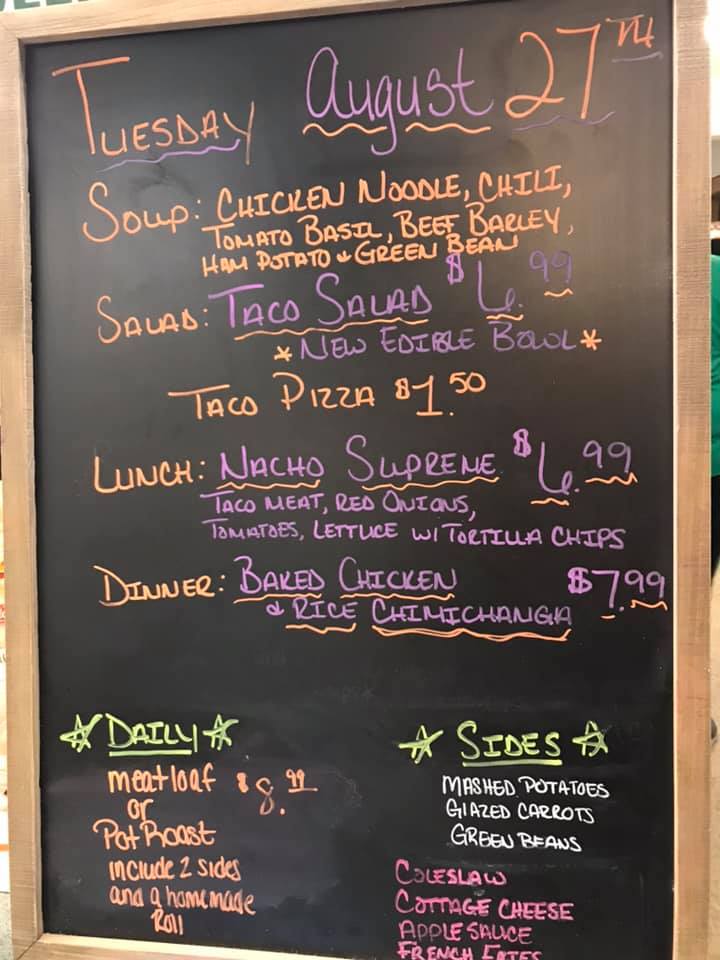 Tuesday August 27TH
Soup: Chicken Noodle, Chili,
Tomato Basil, Beef Barley,
Ham Potato & Green Bean
Salad: Taco Salad $6.99
*New Edible Bowl*
Taco Pizza $1.50
Lunch: Nacho Supreme $6.99
Taco meat, Red Onions,
Tomatoes, Lettuce w/ Tortilla Chips
Dinner: Baked Chicken $7.99
& Rice Chimichanga
☆ Daily ☆
meatloaf $8.99
or
Pot Roast
include 2 sides
and a homemade
Roll
☆ Sides ☆
Mashed Potatoes
Glazed Carrots
Green Beans
Coleslaw
Cottage Cheese
Applesauce
French Fries